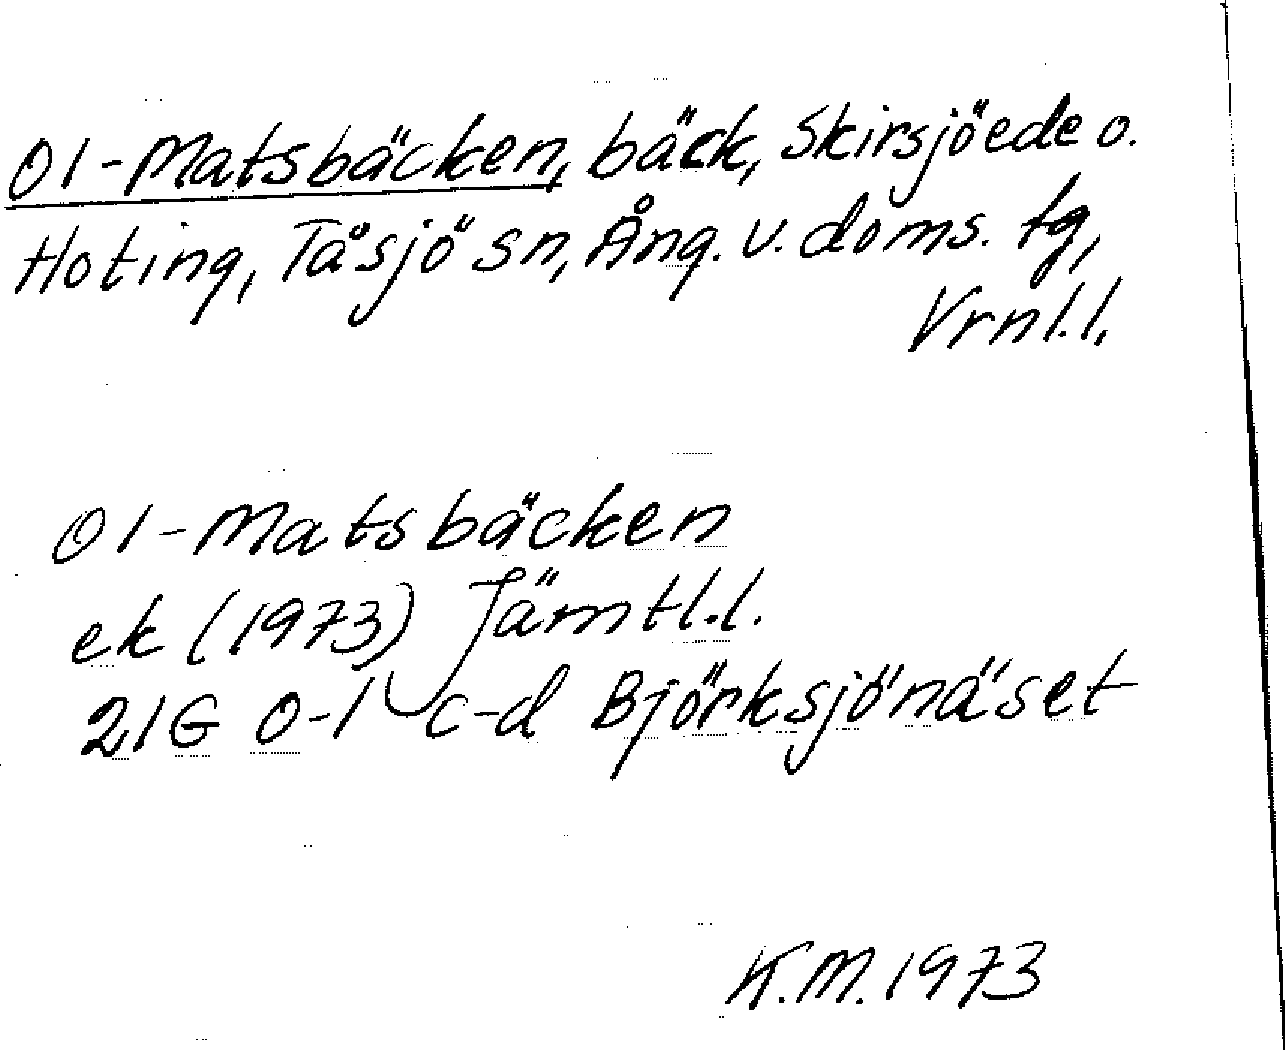 Ol-Matsbäcken, bäck, Skirsjöede o.
Hoting, Tåsjö sn, Ång. v. doms. tg,
Vrnl.l.
Ol-Matsbäcken
ek (1973) Jämtl.l.
21G 0-1 c-d Björksjönäset
K.M. 1973